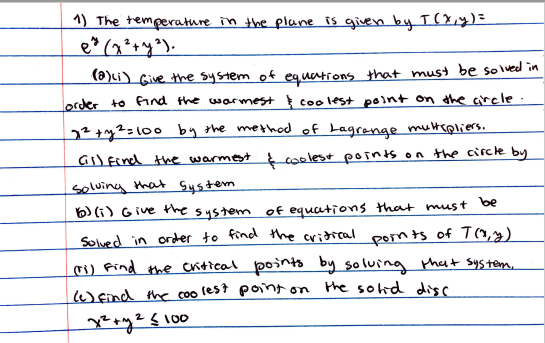 1) The temperature in the plane is given by T(x,y)=
e^y (x²+y²).
(a)(i) Give the system of equations that must be solved in
order to find the warmest & coolest point on the circle.
x²+y²=100 by the method of Lagrange multipliers.
(ii) Find the warmest & coolest points on the circle by
solving that system
b)(i) Give the system of equations that must be
solved in order to find the critical points of T(x,y)
(ii) Find the critical points by solving that system.
(c) Find the coolest point on the solid disc
x²+y² ≤ 100